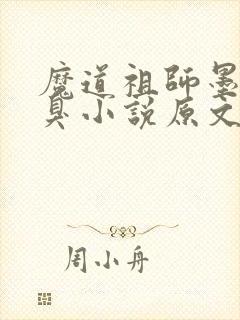 魔道祖師墨
臭小説原文
周小舟